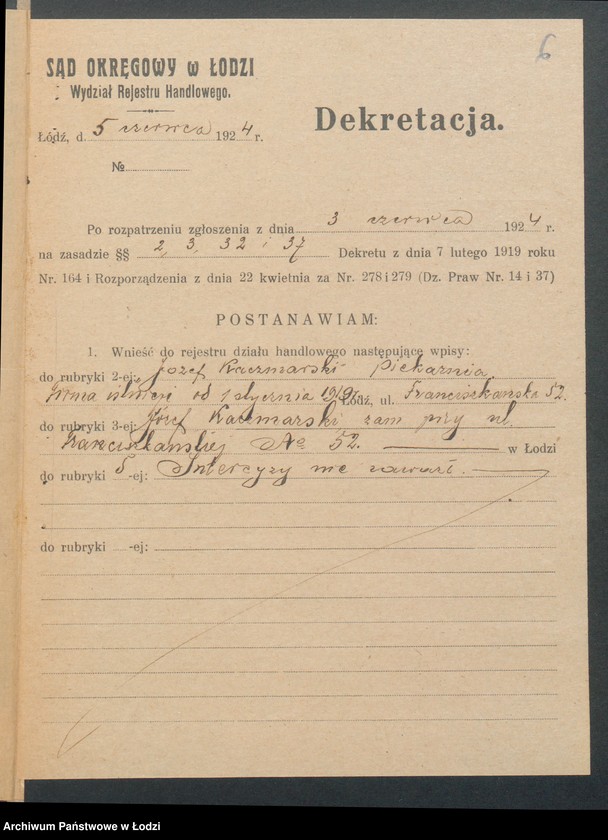 6
SĄD OKRĘGOWY w ŁODZI
Wydział Rejestru Handlowego.
Łódź, d. 5 czerwca 1924 r.
Dekretacja.
№
Po rozpatrzeniu zgłoszenia z dnia 3 czerwca 1924 r.
na zasadzie §§ 2, 3, 32 i 37 Dekretu z dnia 7 lutego 1919 roku
Nr. 164 i Rozporządzenia z dnia 22 kwietnia za Nr. 278 i 279 (Dz. Praw Nr. 14 i 37)
POSTANAWIAM:
1. Wnieść do rejestru działu handlowego następujące wpisy:
do rubryki 2-ej: Józef Kaczmarski piekarnia.
Firma istnieje od 1 stycznia 1919 r. Łódź, ul. Franciszkańska 52.
do rubryki 3-ej: Józef Kaczmarski zam przy ul.
Franciszkańskiej № 52. w Łodzi
do rubryki 5-ej: Intercyzy nie zawarł.
do rubryki -ej:
Archiwum Państwowe w Łodzi